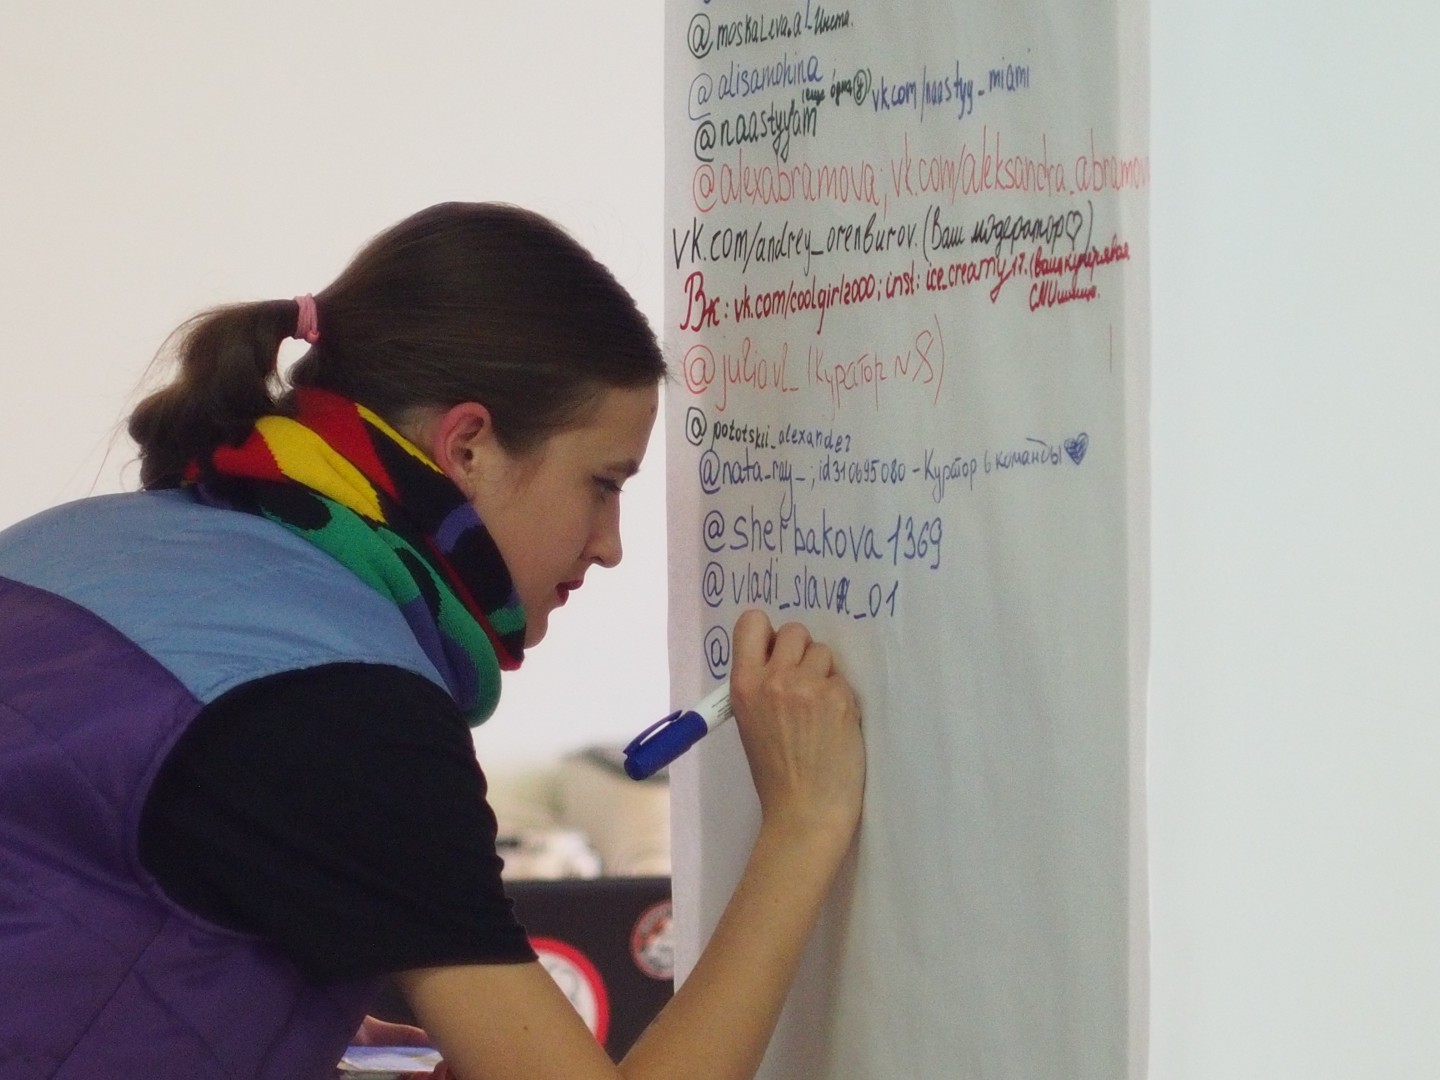 @moskaleva.a
@alisamohina
@naastyyam (еще одна) vk.com/naastyy_miami
@alexabramova; vk.com/aleksandra_abramov
vk.com/andrey_orenburov. (Ваш модератор♡)
Вк: vk.com/coolgirl2000; inst: ice_creamy17. (Ваша кучерявая
СМИшница.
@juliavl_ (Куратор №8)
@pototskii_alexander
@nata_ray_; id310695080 - Куратор 6 команды
@sherbakova1369
@vladi_slava_01
@